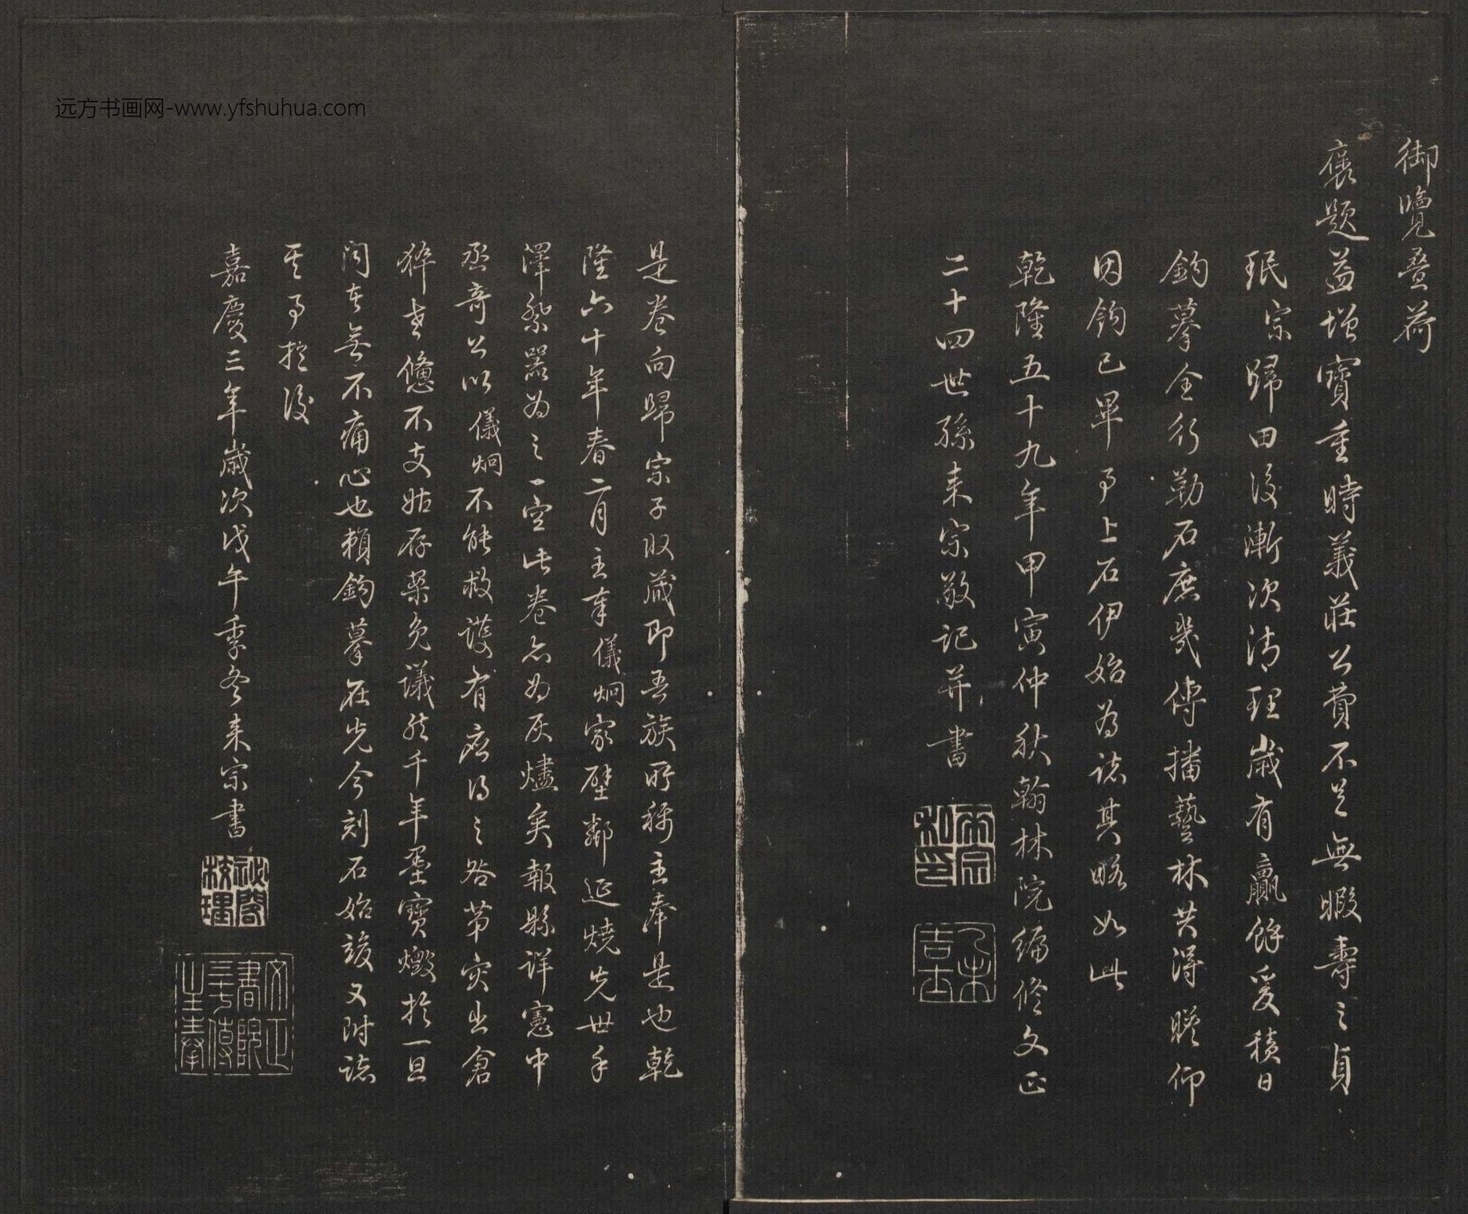 远方书画网-www.yfshuhua.com
御覽疊荷
褒題益增寶重時義莊公費不足無暇壽之貞
珉宗歸田後漸次清理歲有贏餘爰積日
鈎摹全行勒石庶幾傳播藝林共得瞻仰
因鈎已畢乃上石伊始為誌其略如此
乾隆五十九年甲寅仲秋翰林院編修文正
二十四世孫來宗敬記并書
是卷向歸宗子收藏即吾族所稱主奉是也乾
隆六十年春二月主奉儀炯家壁鄰延燒先世手
澤祭器為之一空此卷亦為灰燼矣報縣詳憲中
丞奇公以儀炯不能救護有應得之咎第突出倉
猝老憊不支姑存案免議然千年墨寶燬於一旦
聞者無不痛心也賴鈎摹在先今刻石始竣又附誌
其事於後
嘉慶三年歲次戊午季冬來宗書